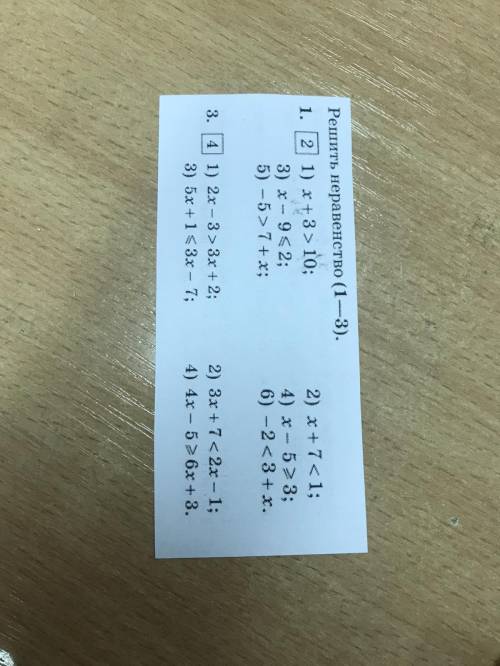 Решить неравенство (1—3).
1. 2 1) x + 3 > 10; 2) x + 7 < 1;
3) x − 9 ⩽ 2; 4) x − 5 ⩾ 3;
5) −5 > 7 + x; 6) −2 < 3 + x.
3. 4 1) 2x − 3 > 3x + 2; 2) 3x + 7 < 2x − 1;
3) 5x + 1 ⩽ 3x − 7; 4) 4x − 5 ⩾ 6x + 3.